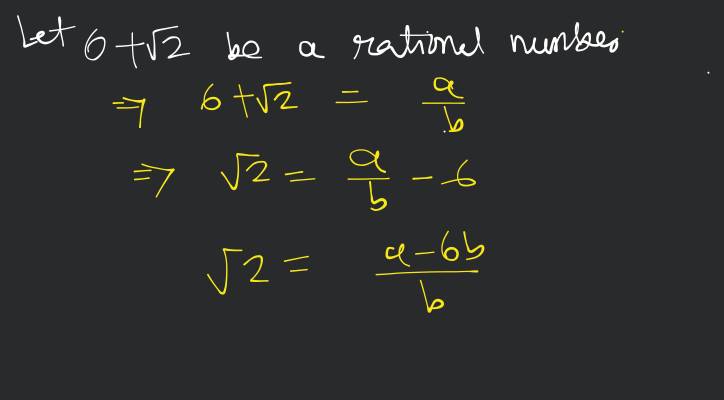 Let 6+√2 be a rational number
⇒ 6+√2 = a/b
⇒ √2 = a/b - 6
√2 = (a-6b)/b